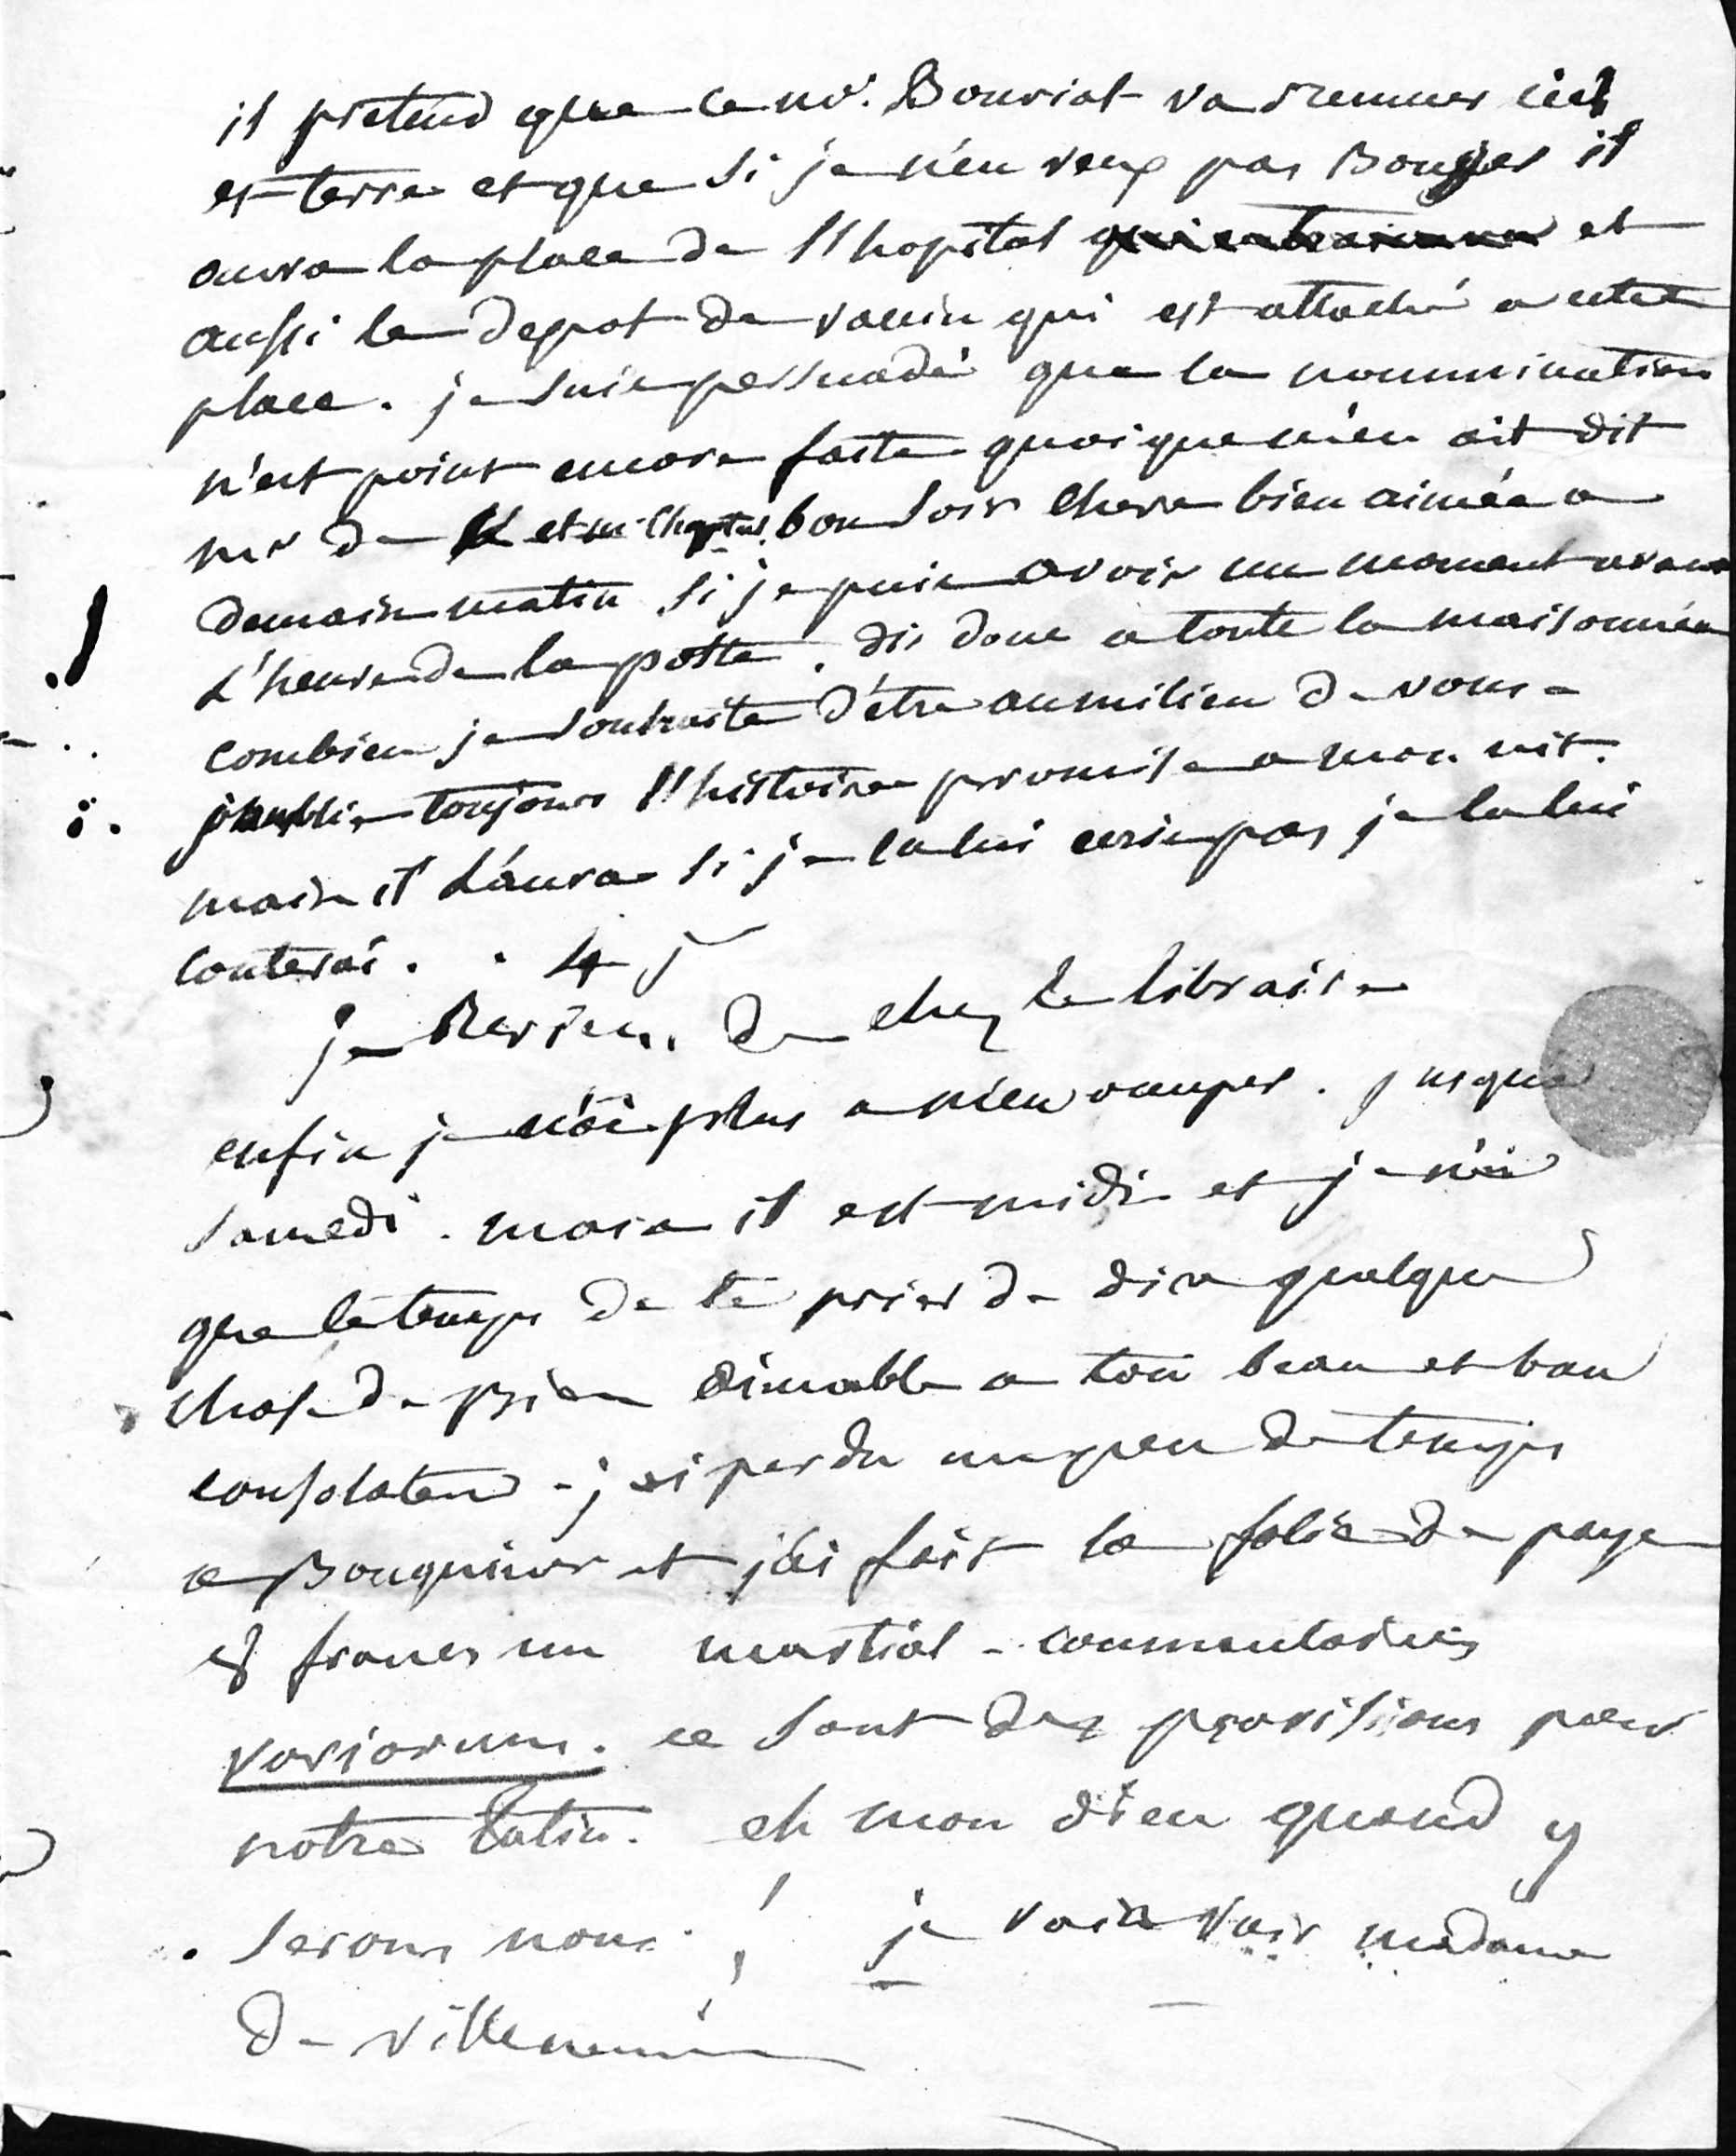 il pretend que ce mr. Bouriat va remuer ciel
et terre et que si je n'en veux pas Bouger il
aura la place de l'hopital et
aussi le depot de vaccin qui est attaché a cette
place. je suis persuadé que la nommination
n'est point encore faite quoique m'en ait dit
mr de et mr Chaptal. bon soir chere bien aimée a
demain matin si je puis avoir un moment avant
L'heure de la poste. dis donc a toute la maisonnée
combien je souhaite d'être au milieu de vous.
j'oublie toujours l'histoire promise a mon
mais il l'aura si je la lui ecris pas je la lui
conterai. . 4 j
je Reviens de chez le libraire
enfin je n'ai plus a m'en occuper. jusqua
samedi. mais il est midi et je n'ai
que le temps de te prier de dire quelque
chose de Bien aimable a ton beau et bon
consolateur - j'ai perdu un peu de temps
a Bouquiner et j'ai fait la folie de payer
8 francs un martial - commentaires
variorum. ce sont des provisions pour
notre latin. eh mon dieu quand y
serons nous ! je vais voir madame
de